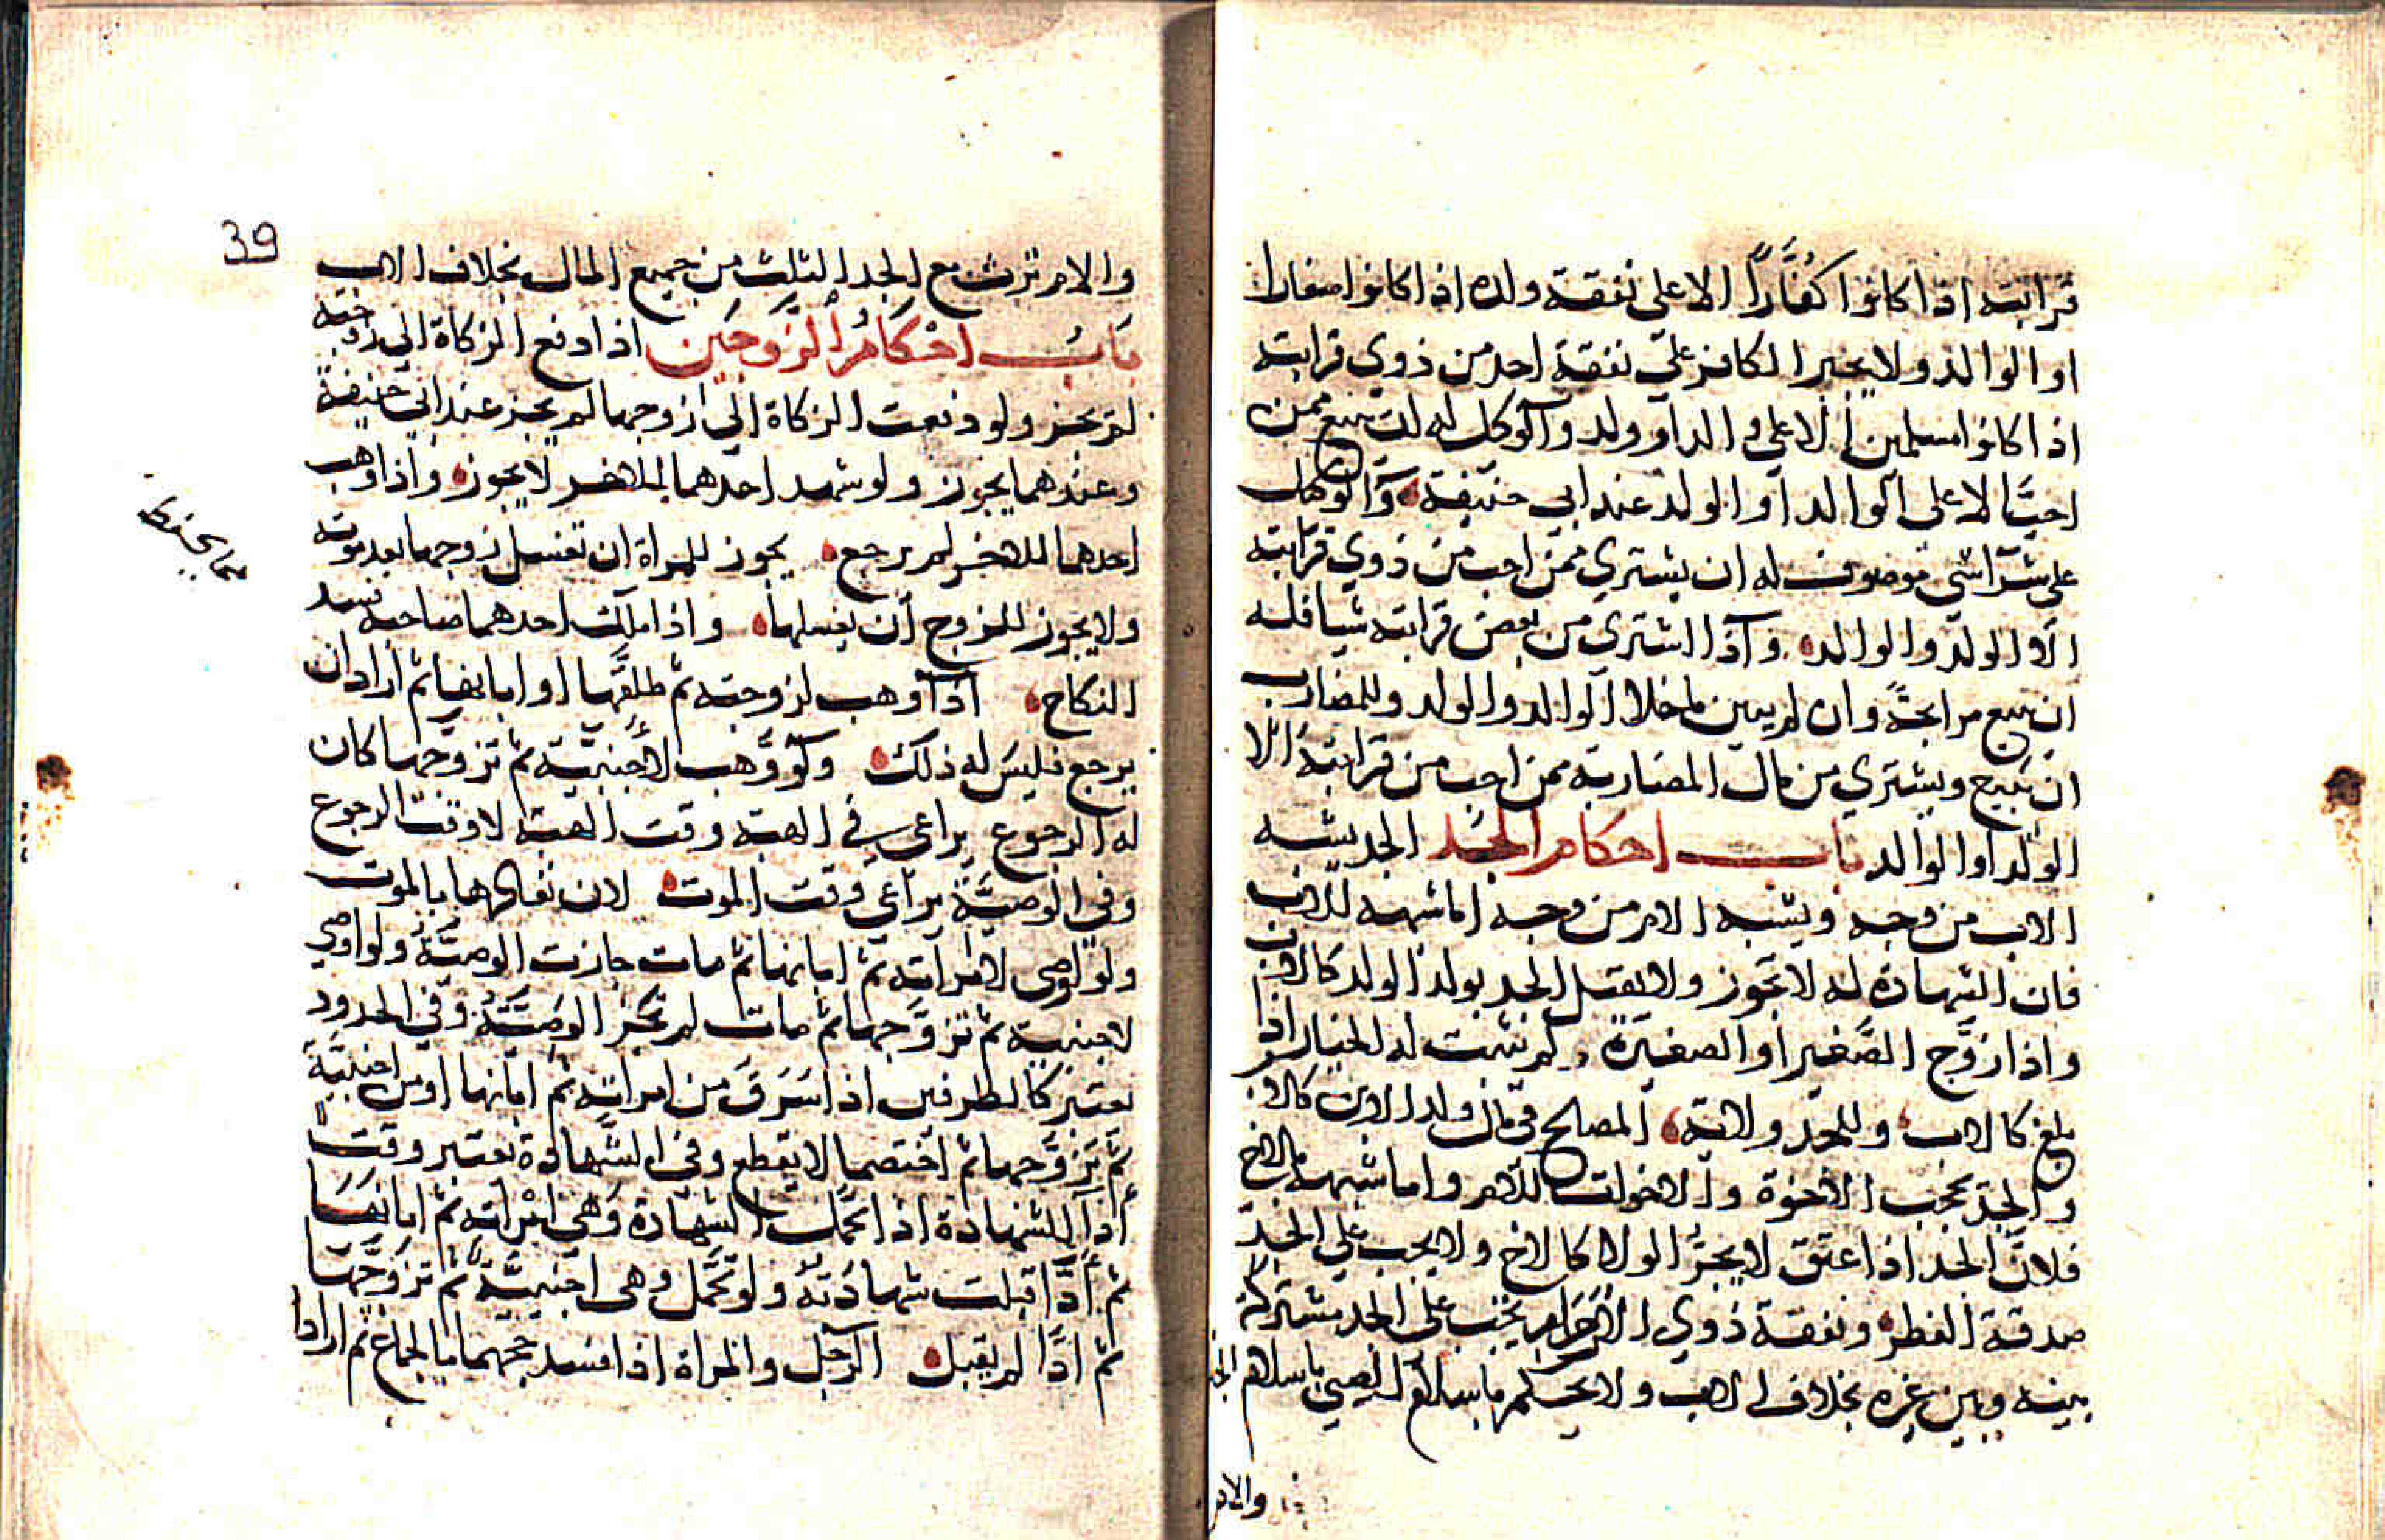 قرابته اذا كانوا كُفَّاراً الا على نفقة ولده اذا كانوا صغارا
او الوالد ولا يجبر الكافر على نفقة احد من ذوي قرابته
اذا كانوا مسلمين الا على والد او ولد والوكيل له ان يبيع ممن
احبّ الا على الوالد او الولد عند ابي حنيفة والوكيل
على شرا شي موصوف له ان يشتري ممن احب من ذوي قرابته
الا الولد والوالد واذا اشترى من بعض قرابته شيا فله
ان يبيع مرابحةً وان لم يبين ما خلا الوالد والولد وللمضارب
ان يبيع ويشتري من مال المضاربة ممن احب من قرابته الا
الولد او الوالد باب احكام الجد الجد يشبه
الاب من وجه ويشبه الام من وجه اما شبهه للاب
فان الشهادة له لا تجوز ولا يقتل الجد بولد الولد كالاب
واذا زوّج الصّغير او الصغيرة لم يثبت له الخيار اذا
بلغ كالاب وللجد ولاية المصالح في مال ولد الابن كالاب
والجد يحجب الاخوة والاخوات للام واما شبهه بالاخ
فلانّ الجد اذا اعتق لا يجرّ الولا كالاخ ولا يجب على الجدّ
صدقة الفطر ونفقة ذوي الارحام يجب على الجد مشتركة
بينه وبين غيره بخلاف الاب ولا يحكم باسلام الصبي باسلام الجد
والام
39
والام ترث مع الجد الثلث من جميع المال بخلاف الاب
باب احكام الزوجين اذا دفع الزكاة الى زوجته
لم يجز ولو دفعت الزكاة الى زوجها لم يجز عند ابي حنيفة
وعندهما يجوز ولو شهد احدهما للاخر لا يجوز واذا وهب
احدهما للاخر لم يرجع يجوز للمراة ان تغسل زوجها بعد موته
ولا يجوز للزوج ان يغسلها واذا ملك احدهما صاحبه فسد
النكاح اذا وهب لزوجته ثم طلقها او ابانها ثم اراد ان
يرجع فليس له ذلك ولو وهب لاجنبيّة ثم تزوّجها كان
له الرجوع يراعى في الهبة وقت الهبة لا وقت الرجوع
وفي الوصيّة يراعى وقت الموت لان نفاذها بالموت
ولو اوصى لامراته ثم ابانها ثم مات جازت الوصيّة ولو اوصى
لاجنبية ثم تزوّجها ثم مات لم تجز الوصيّة وفي الحدود
يعتبر كالطرفين اذا سرق من امراته ثم ابانها او من اجنبيّة
ثم تزوّجها ثم اختصما لا يقطع وفي الشهادة يعتبر وقت
اذا الشهادة اذا تحمّل الشهادة وهي امراته ثم ابانها
ثم ادّا قبلت شهادته ولو تحمّل وهي اجنبيّة ثم تزوّجها
ثم ادّا لم يقبل الرجل والمراة اذا افسد حجهما بالجماع ثم ارادا